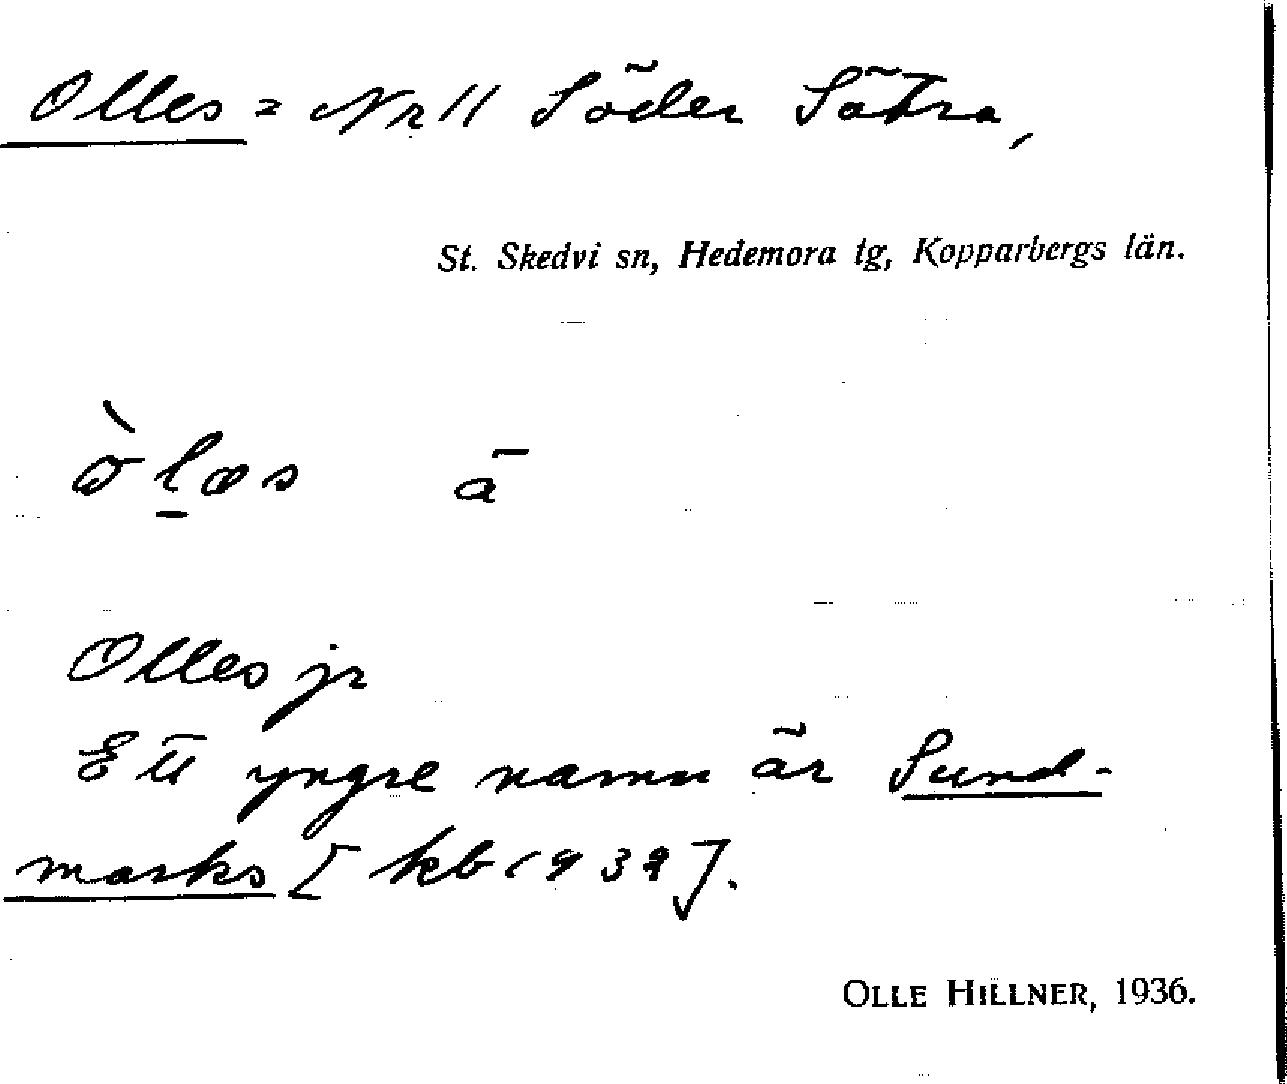 Olles = Nr 11 Söder Sätra,
St. Skedvi sn, Hedemora tg, Kopparbergs län.
ò̠læs ā
Olles jr
Ett yngre namn är Sund-
marks [kb 1939].
OLLE HILLNER, 1936.